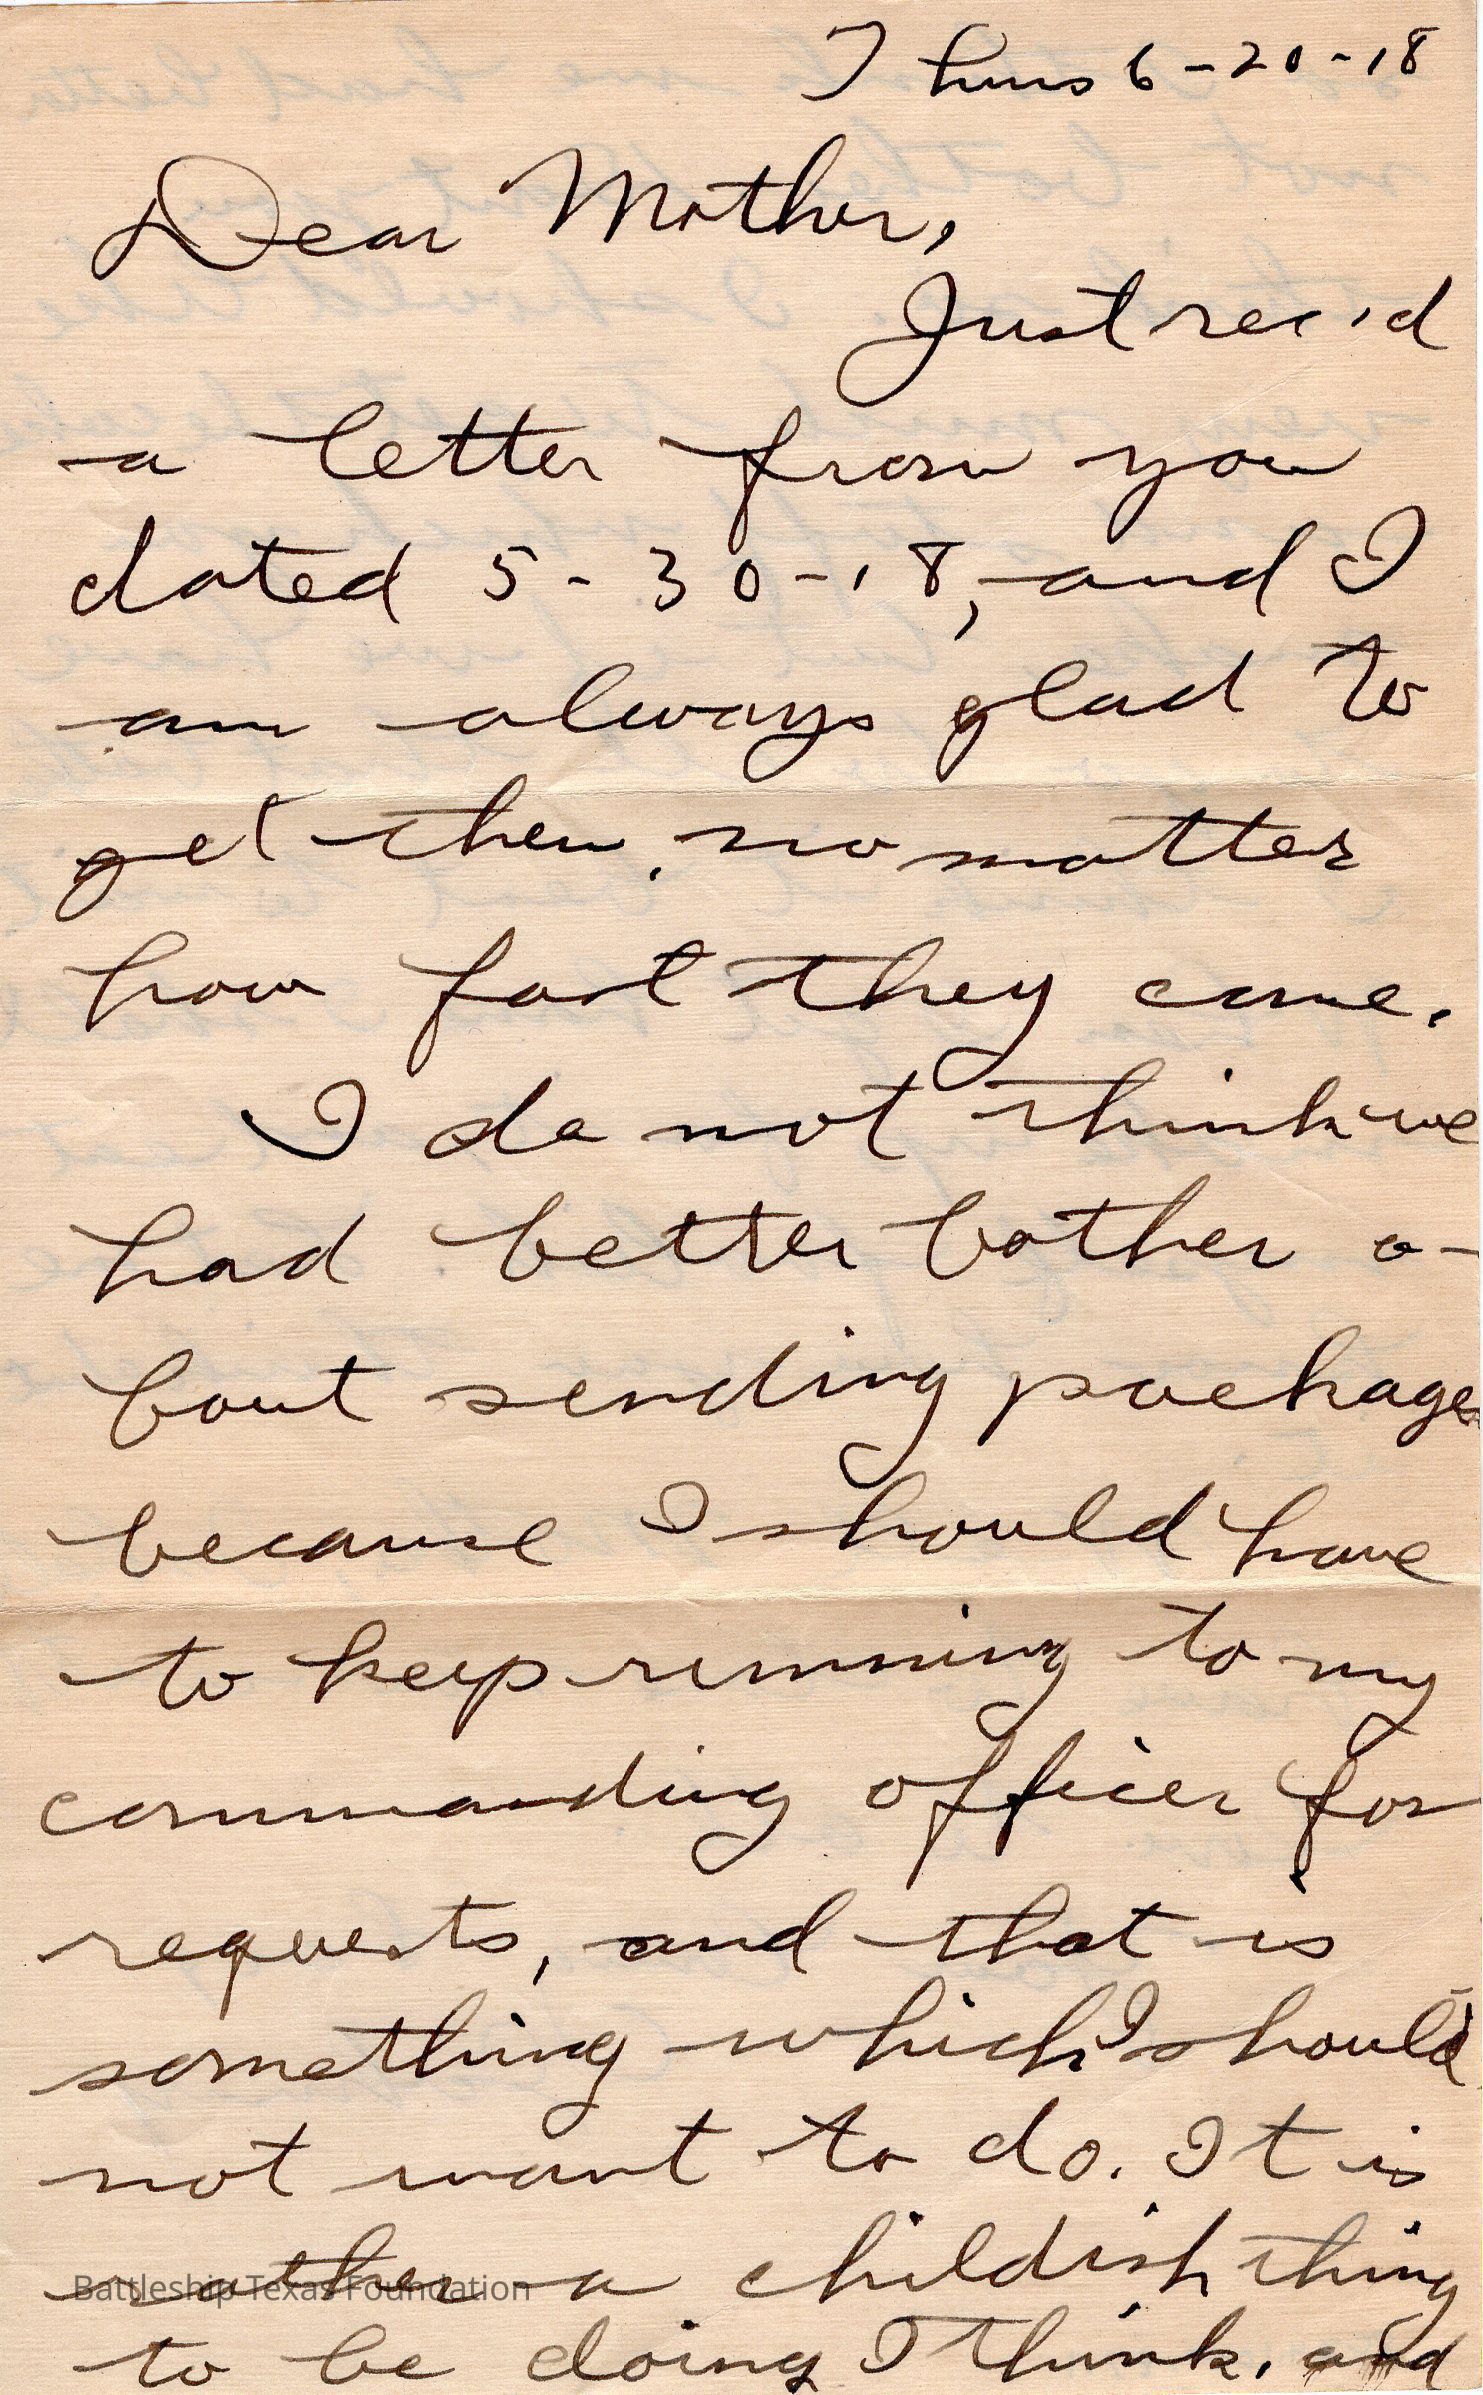 Thurs 6-20-18
Dear Mother,
Just rec'd
a letter from you
dated 5-30-18, and I
am always glad to
get them, no matter
how fast they come.
I do not think we
had better bother a-
bout sending packages
because I should have
to keep running to my
commanding officer for
requests, and that is
something which I should
not want to do. It is
rather a childish thing
Battleship Texas Foundation
to be doing I think, and